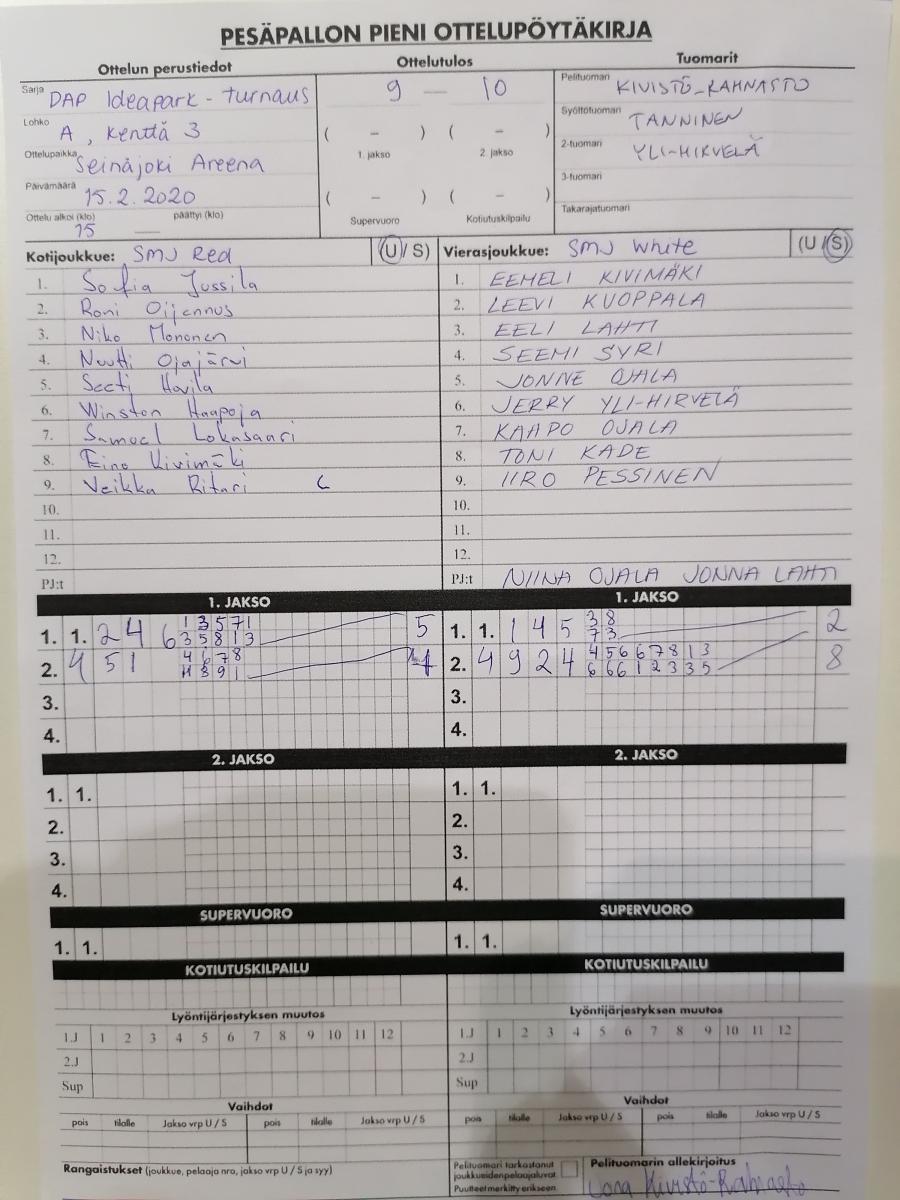 PESÄPALLON PIENI OTTELUPÖYTÄKIRJA
Ottelun perustiedot
Sarja DAP Ideapark - turnaus
Lohko A, kenttä 3
Ottelupaikka Seinäjoki Areena
Päivämäärä 15.2.2020
Ottelu alkoi (klo) päättyi (klo)
15 —
Ottelutulos
9 — 10
( – ) ( – )
1. jakso 2. jakso
( – ) ( – )
Supervuoro Kotiutuskilpailu
Tuomarit
Pelituomari KIVISTÖ-RAHNASTO
Syöttötuomari TANNINEN
2-tuomari YLI-HIRVELÄ
3-tuomari
Takarajatuomari
Kotijoukkue: SMJ Red (U / S)
1. Sofia Jussila
2. Roni Oijennus
3. Niko Mononen
4. Nuutti Ojajärvi
5. Seeti Havila
6. Winston Haapoja
7. Samuel Lokasaari
8. Eino Kivimäki
9. Veikka Ritari C
10.
11.
12.
PJ:t
Vierasjoukkue: SMJ White (U / S)
1. EEMELI KIVIMÄKI
2. LEEVI KUOPPALA
3. EELI LAHTI
4. SEEMI SYRI
5. JONNE OJALA
6. JERRY YLI-HIRVELÄ
7. KAAPO OJALA
8. TONI KADE
9. IIRO PESSINEN
10.
11.
12.
PJ:t NIINA OJALA JONNA LAHTI
1. JAKSO
1. 1. 2 4 6 1 3 5 7 1 5
3 5 8 1 3
2. 4 5 1 4 6 7 8
3 9 1
3.
4.
1. JAKSO
1. 1. 1 4 5 3 8 2
7 3
2. 4 9 2 4 4 5 6 6 7 8 1 3 8
6 6 6 1 2 3 3 5
3.
4.
2. JAKSO
1. 1.
2.
3.
4.
2. JAKSO
1. 1.
2.
3.
4.
SUPERVUORO
1. 1.
SUPERVUORO
1. 1.
KOTIUTUSKILPAILU
KOTIUTUSKILPAILU
Lyöntijärjestyksen muutos
1.J 1 2 3 4 5 6 7 8 9 10 11 12
2.J
Sup
Lyöntijärjestyksen muutos
1.J 1 2 3 4 5 6 7 8 9 10 11 12
2.J
Sup
Vaihdot
pois tilalle Jakso vrp U / S pois tilalle Jakso vrp U / S
Vaihdot
pois tilalle Jakso vrp U / S pois tilalle Jakso vrp U / S
Rangaistukset (joukkue, pelaaja nro, jakso vrp U / S ja syy)
Pelituomari tarkastanut
joukkueiden pelaajaluvat
Puutteet merkitty erikseen.
Pelituomarin allekirjoitus
Kivistö-Rahnasto